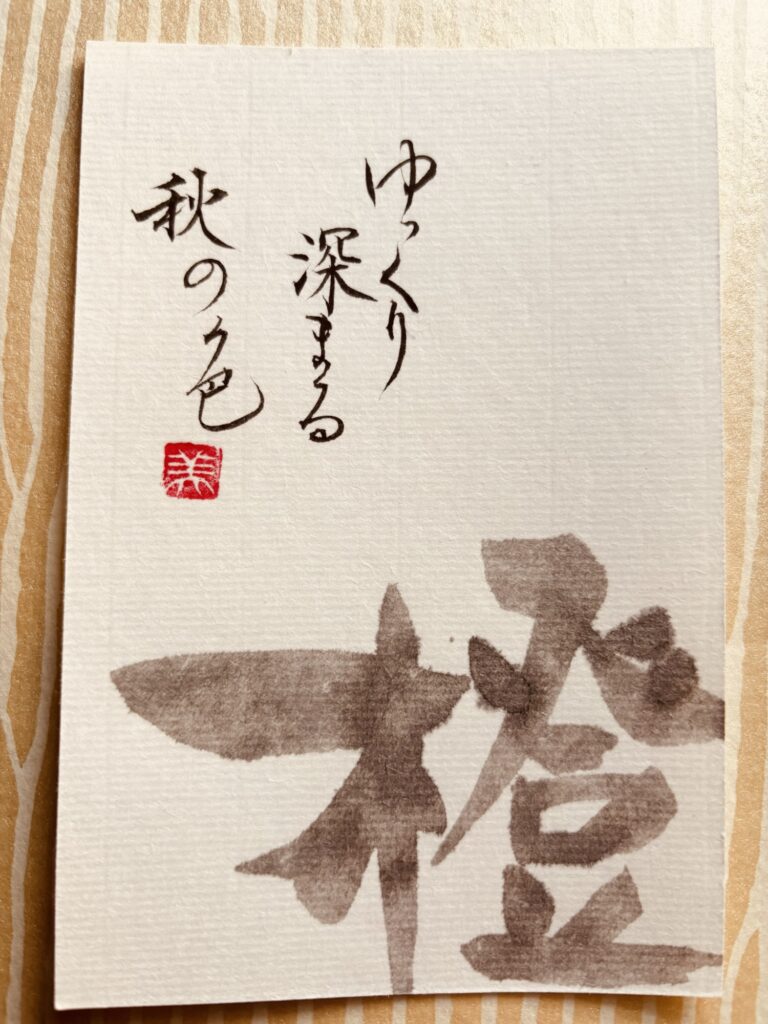 ゆっくり
深まる
秋の色
美
橙